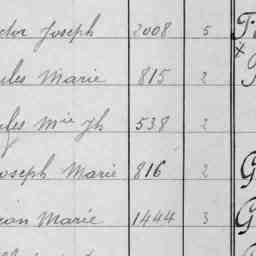 Joseph 2008 5
Marie 815 2
Mie Jh 538 2
Joseph Marie 816 2 G
Marie 1444 3 G